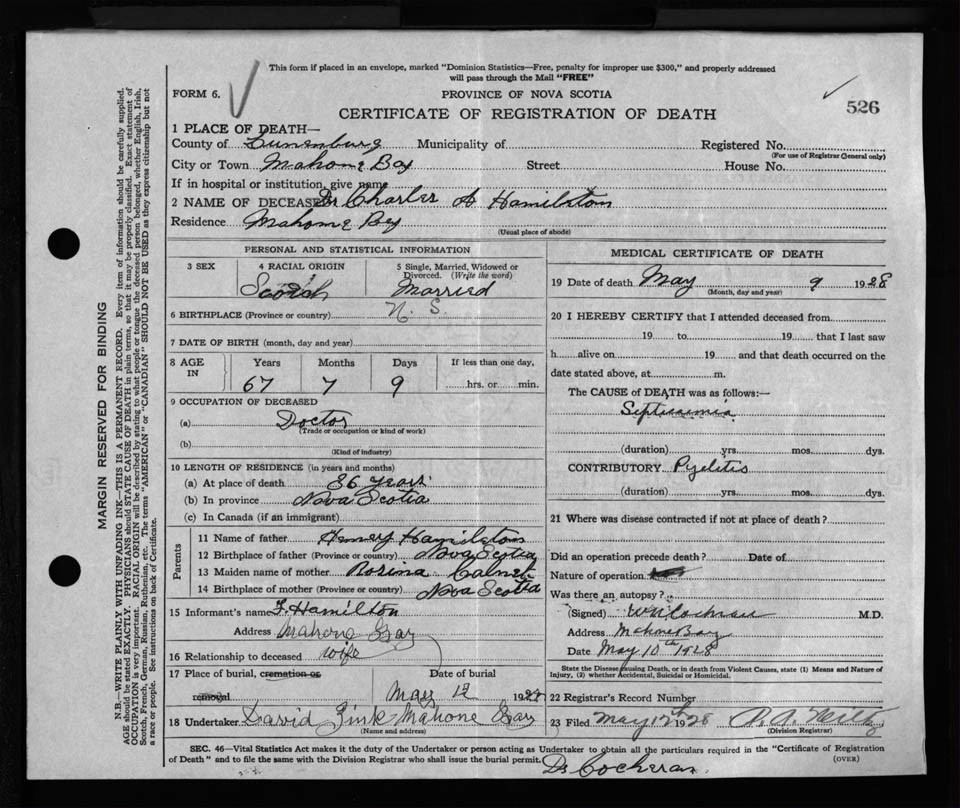 This form if placed in an envelope, marked "Dominion Statistics—Free, penalty for improper use $300," and properly addressed
will pass through the Mail "FREE"
FORM 6.
PROVINCE OF NOVA SCOTIA
CERTIFICATE OF REGISTRATION OF DEATH
526
1 PLACE OF DEATH—
County of Lunenburg Municipality of Registered No.
(For use of Registrar General only)
City or Town Mahone Bay Street House No.
If in hospital or institution, give name
2 NAME OF DECEASED Dr Charles A Hamilton
Residence Mahone Bay
(Usual place of abode)
PERSONAL AND STATISTICAL INFORMATION
3 SEX 4 RACIAL ORIGIN 5 Single, Married, Widowed or Divorced. (Write the word)
Scotch Married
6 BIRTHPLACE (Province or country) N. S.
7 DATE OF BIRTH (month, day and year)
8 AGE IN Years Months Days If less than one day,
67 7 9 hrs. or min.
9 OCCUPATION OF DECEASED
(a) Doctor
(Trade or occupation or kind of work)
(b)
(Kind of industry)
10 LENGTH OF RESIDENCE (in years and months)
(a) At place of death 36 years
(b) In province Nova Scotia
(c) In Canada (if an immigrant)
Parents
11 Name of father Henry Hamilton
12 Birthplace of father (Province or country) Nova Scotia
13 Maiden name of mother Rosina
14 Birthplace of mother (Province or country) Nova Scotia
15 Informant's name F. Hamilton
Address Mahone Bay
16 Relationship to deceased wife
17 Place of burial, cremation or Date of burial
removal May 12 1928
18 Undertaker David Zink Mahone Bay
(Name and address)
MEDICAL CERTIFICATE OF DEATH
19 Date of death May 9 1928
(Month, day and year)
20 I HEREBY CERTIFY that I attended deceased from
19 to 19 that I last saw
h alive on 19 and that death occurred on the
date stated above, at m.
The CAUSE of DEATH was as follows:—
Septicaemia
(duration) yrs. mos. dys.
CONTRIBUTORY Pyelitis
(duration) yrs. mos. dys.
21 Where was disease contracted if not at place of death?
Did an operation precede death? Date of
Nature of operation
Was there an autopsy?
(Signed) Cochran M.D.
Address Mahone Bay
Date May 10th 1928
State the Disease causing Death, or in death from Violent Causes, state (1) Means and Nature of
Injury, (2) whether Accidental, Suicidal or Homicidal.
22 Registrar's Record Number
23 Filed May 12th 1928
(Division Registrar)
SEC. 46—Vital Statistics Act makes it the duty of the Undertaker or person acting as Undertaker to obtain all the particulars required in the "Certificate of Registration
of Death" and to file the same with the Division Registrar who shall issue the burial permit.
(OVER)
Dr Cocheran.
MARGIN RESERVED FOR BINDING
N.B.—WRITE PLAINLY WITH UNFADING INK—THIS IS A PERMANENT RECORD. Every item of information should be carefully supplied.
AGE should be stated EXACTLY. PHYSICIANS should STATE CAUSE OF DEATH in plain terms, so that it may be properly classified. Exact statement of
OCCUPATION is very important. RACIAL ORIGIN will be described by stating to what people or tongue the deceased person belonged, whether English, Irish,
Scotch, French, German, Russian, Ruthenian, etc. The terms "AMERICAN" or "CANADIAN" SHOULD NOT BE USED as they express citizenship but not
a race or people. See instructions on back of Certificate.